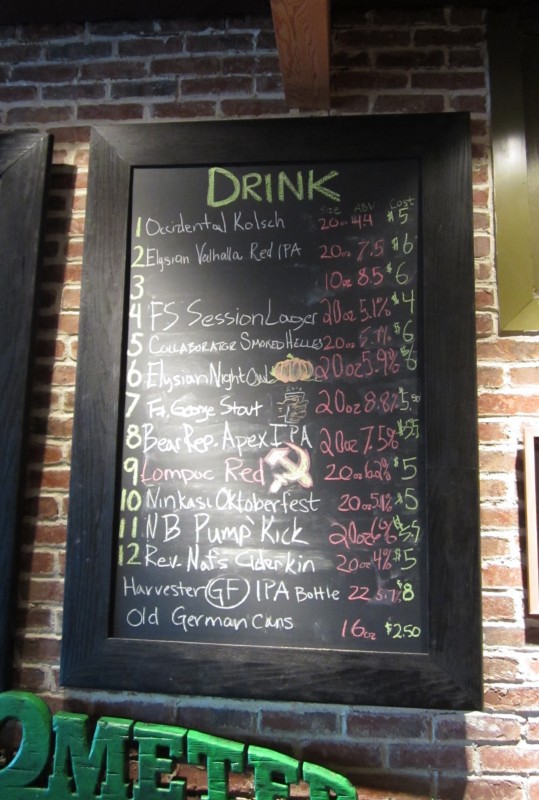 DRINK
Size ABV Cost
1 Occidental Kolsch 20oz 4.4 $5
2 Elysian Valhalla Red IPA 20oz 7.5 $6
3 10oz 8.5 $6
4 FS Session Lager 20oz 5.1% $4
5 COLLABORATOR SMOKED HELLES 20oz $6
6 Elysian Night Owl 20oz 5.9% $6
7 Ft. George Stout 20oz 8.8% $5.50
8 Bear Rep. Apex IPA 20oz 7.5%
9 Lompoc Red 20oz 6.2% $5
10 Ninkasi Oktoberfest 20oz $5
11 NB Pump Kick 20oz 6% $5.5
12 Rev. Nat's Ciderkin 20oz 4% $5
Harvester GF IPA Bottle 22 $8
Old German Cans 16oz $2.50
OMETER